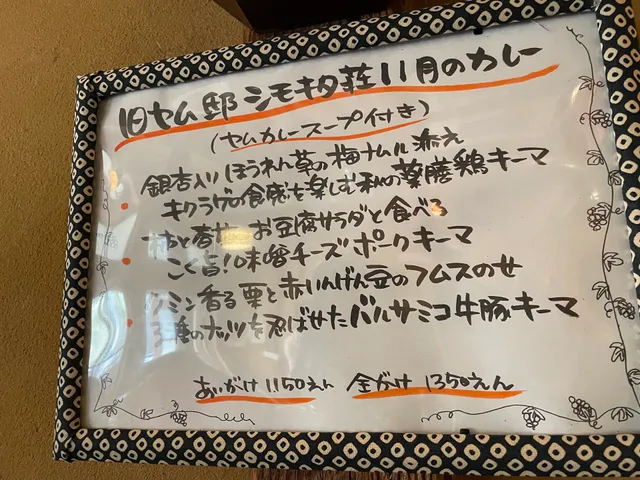 旧ヤム邸 シモキタ荘 11月のカレー
(ヤムカレースープ付き)
銀杏入り ほうれん草の梅ナムル添え
キクラゲの食感を楽しむ秋の薬膳鶏キーマ
お豆腐サラダと食べる
こく旨!味噌チーズポークキーマ
ミン香る栗と赤いんげん豆のフムスのせ
ナッツを忍ばせたバルサミコ牛豚キーマ
あいがけ 1150えん 全がけ 1350えん